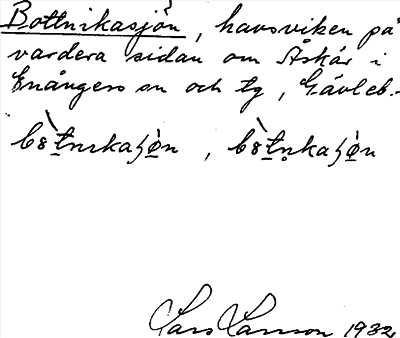 Bottnikasjön, havsviken på
vardera sidan om Åskär i
Enångers sn och tg, Gävleb.-
Lars Larsson 1932